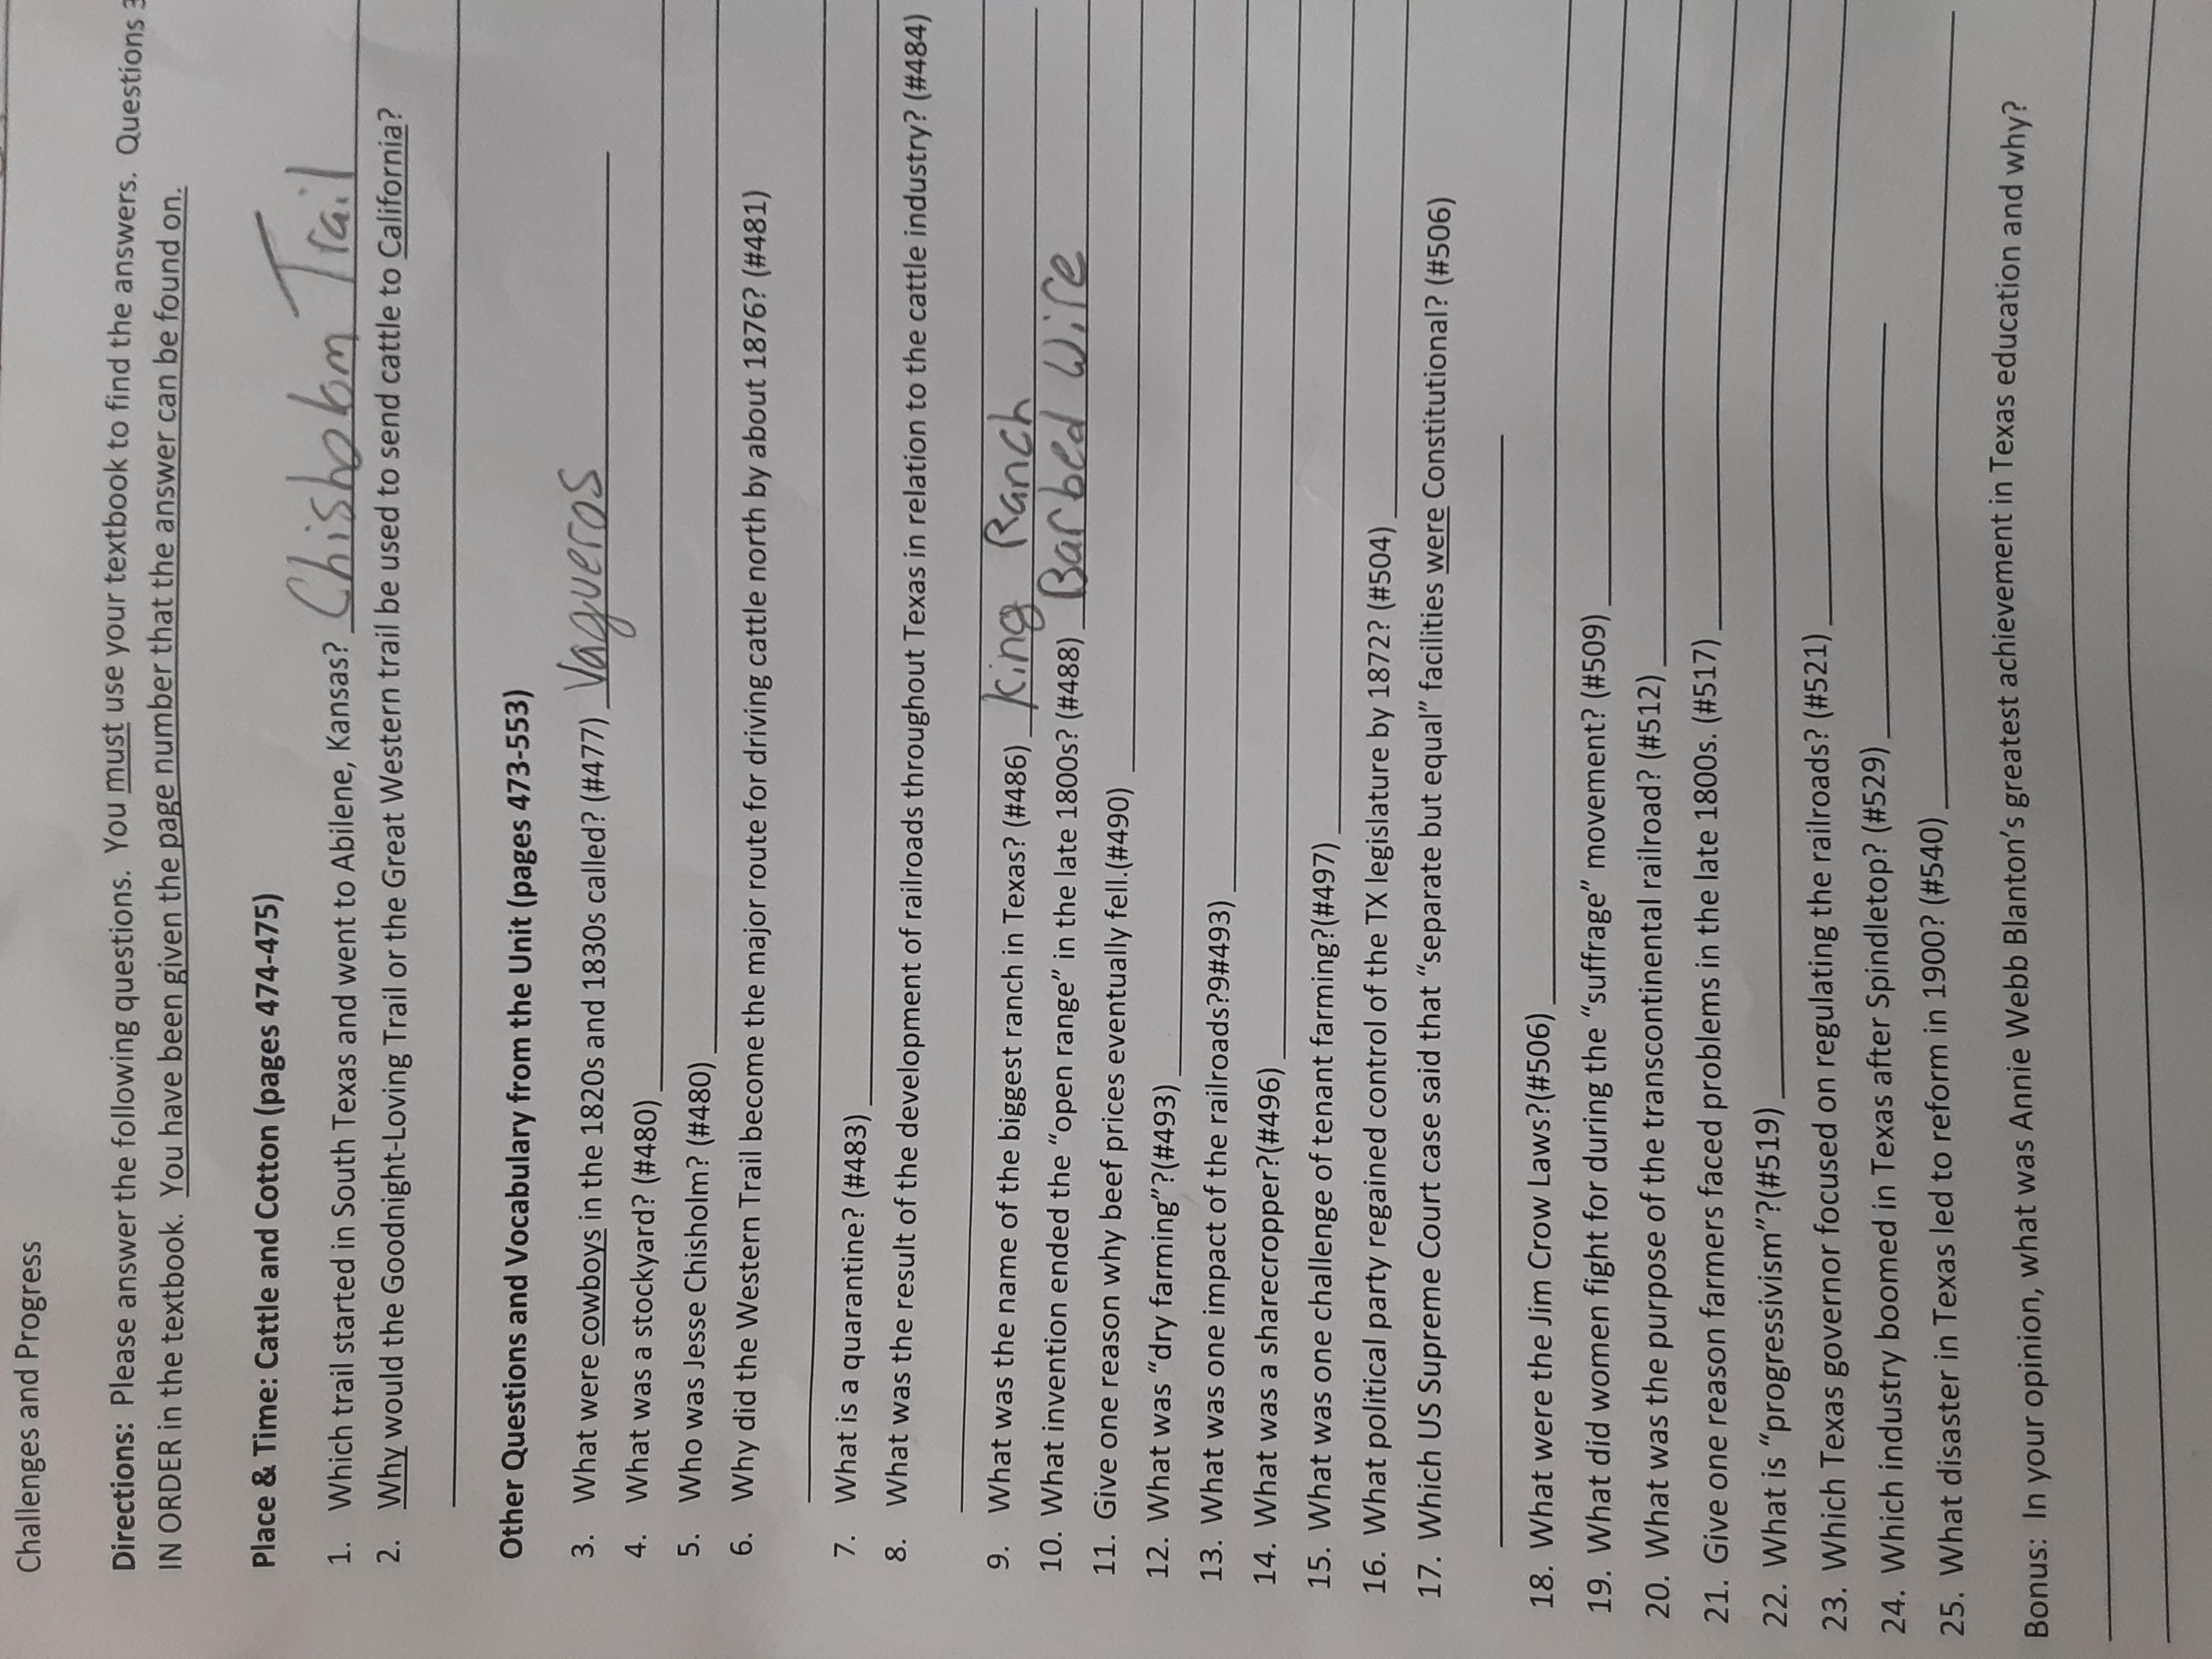 Challenges and Progress
Directions: Please answer the following questions. You must use your textbook to find the answers. Questions 3
IN ORDER in the textbook. You have been given the page number that the answer can be found on.
Place & Time: Cattle and Cotton (pages 474-475)
1. Which trail started in South Texas and went to Abilene, Kansas? Chisholm Trail
2. Why would the Goodnight-Loving Trail or the Great Western trail be used to send cattle to California?
Other Questions and Vocabulary from the Unit (pages 473-553)
3. What were cowboys in the 1820s and 1830s called? (#477) Vaqueros
4. What was a stockyard? (#480)
5. Who was Jesse Chisholm? (#480)
6. Why did the Western Trail become the major route for driving cattle north by about 1876? (#481)
7. What is a quarantine? (#483)
8. What was the result of the development of railroads throughout Texas in relation to the cattle industry? (#484)
9. What was the name of the biggest ranch in Texas? (#486) King Ranch
10. What invention ended the "open range" in the late 1800s? (#488) Barbed Wire
11. Give one reason why beef prices eventually fell.(#490)
12. What was "dry farming"?(#493)
13. What was one impact of the railroads?9#493)
14. What was a sharecropper?(#496)
15. What was one challenge of tenant farming?(#497)
16. What political party regained control of the TX legislature by 1872? (#504)
17. Which US Supreme Court case said that "separate but equal" facilities were Constitutional? (#506)
18. What were the Jim Crow Laws?(#506)
19. What did women fight for during the "suffrage" movement? (#509)
20. What was the purpose of the transcontinental railroad? (#512)
21. Give one reason farmers faced problems in the late 1800s. (#517)
22. What is "progressivism"?(#519)
23. Which Texas governor focused on regulating the railroads? (#521)
24. Which industry boomed in Texas after Spindletop? (#529)
25. What disaster in Texas led to reform in 1900? (#540)
Bonus: In your opinion, what was Annie Webb Blanton's greatest achievement in Texas education and why?